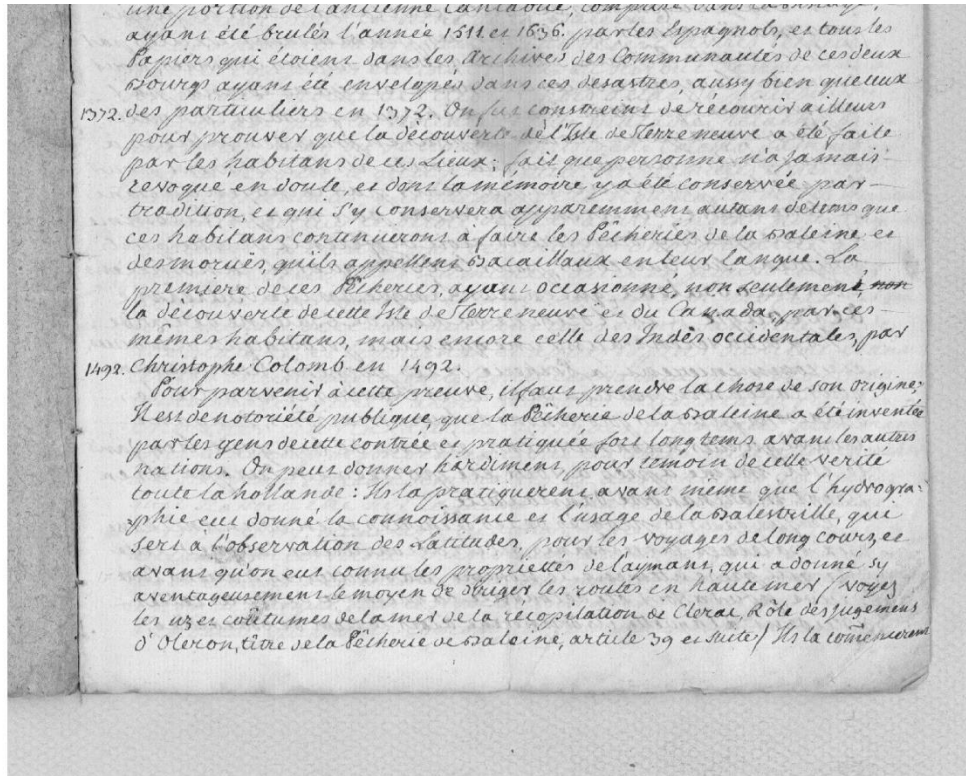 une portion de l'ancienne Cantabrie, comprise dans la
ayant été brulés l'année 1511 et 1636. par les Espagnols, et tous les
Papiers qui étoient dans les Archives des Communautés de ces deux
Bourgs ayant été envelopés dans ces desastres, aussy bien que ceux
1372. des particuliers en 1372. On fut constreint de recourir ailleurs
pour prouver que la découverte de l'Isle de Terre neuve a été faite
par les habitans de ces Lieux; fait que personne n'a jamais
revoqué en doute, et dont la mémoire, y a été conservée par
tradition, et qui s'y conservera apparemment autant de tems que
ces habitans continueront à faire les Pêcheries de la Baleine et
des moruës, qu'ils appellent Bacaillaux en leur langue. La
premiere de ces Pêcheries, ayant occasionné, non seulement, non
la découverte de cette Isle de Terre neuve et du Canada, par ces
mêmes habitans, mais encore celle des Indes occidentales, par
1492. Christophe Colomb en 1492.
Pour parvenir à cette preuve, il faut prendre la chose de son origine:
Il est de notoriété publique, que la Pêcherie de la Baleine a été inventée
par les gens de cette contrée et pratiquée fort long tems avant les autres
nations. On peut donner hardiment, pour temoin de cette verité
toute la hollande: Ils la pratiquerent avant même que l'hydrogra-
phie eut donné la connoissance et l'usage de la Balestrille, qui
sert à l'observation des Latitudes, pour les voyages de long cours, et
avant qu'on eut connu les proprietés de l'aymant, qui a donné sy
aventageusement le moyen de diriger les routes en haute mer / voyez
les uz et coûtumes de la mer de la récopilation de Cleirac, Rôle des jugemens
d'Oleron, titre de la Pêcherie de Baleine, article 39 et suite / Ils la comencerent